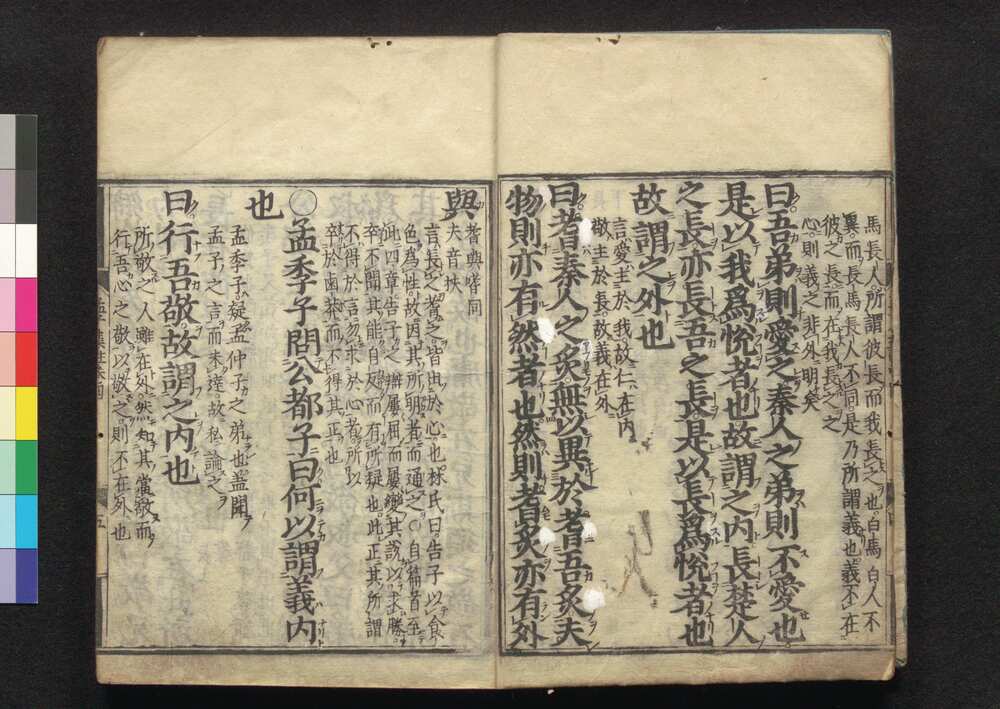 馬長人所謂彼長而我長之也白馬白人不
異而長馬長人不同是乃所謂義也義不在
彼之長而在我長之之
心則義之非外明矣
曰吾弟則愛之秦人之弟則不愛也
是以我爲悅者也故謂之内長楚人
之長亦長吾之長是以長爲悅者也
故謂之外也
言愛主於我故仁在内
敬主於長故義在外
曰耆秦人之炙無以異於耆吾炙夫
物則亦有然者也然則耆炙亦有外
與
耆與嗜同
夫音扶
言長之耆之皆出於心也林氏曰告子以食
色爲性故因其所明者而通之○自篇首至
此四章告子之辯屢屈而屢變其說以求勝
卒不聞其能自反而有所疑也此正其所謂
不得於言勿求於心者所以
卒於鹵莽而不得其正也
○孟季子問公都子曰何以謂義内
也
孟季子疑孟仲子之弟也蓋聞
孟子之言而未達故私論之
曰行吾敬故謂之内也
所敬之人雖在外然知其當敬而
行吾心之敬以敬之則不在外也